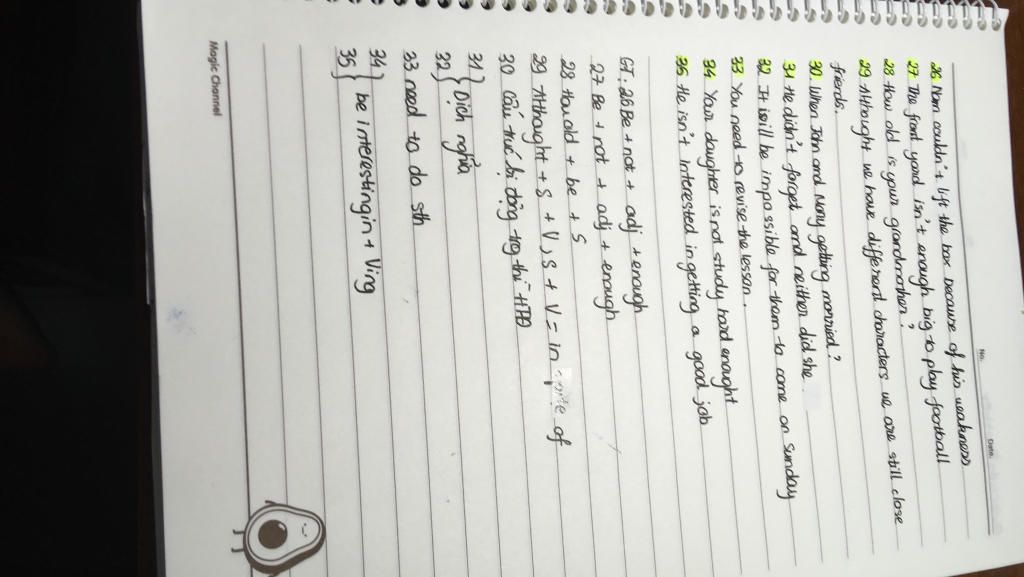 No.
Date.
26 Nam couldn't lift the box because of his weakness
27 The front yard isn't enough big to play football
28 How old is your grandmother?
29 Althought we have different characters we are still close
friends.
30 When John and Mary getting married?
31 He didn't forget and neither did she
32 It will be impossible for them to come on Sunday
33 You need to revise the lesson.
34 Your daughter is not study hard enought
35 He isn't interested in getting a good job
GT: 26 Be + not + adj + enough
27 Be + not + adj + enough
28 How old + be + S
29 Althought + S + V, S + V = in spite of
30 Cấu trúc bị động trog thì HTĐ
31 } Dịch nghĩa
32
33 need to do sth
34 } be interestingin + Ving
35
Magic Channel